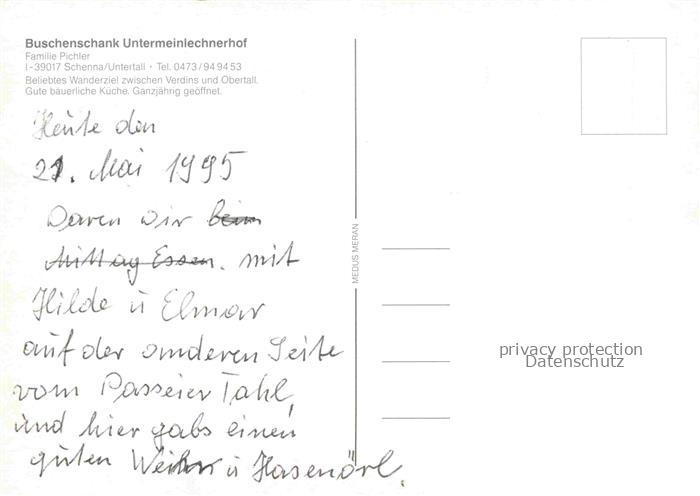 Buschenschank Untermeinlechnerhof
Familie Pichler
I-39017 Schenna/Untertall · Tel. 0473/949453
Beliebtes Wanderziel zwischen Verdins und Obertall.
Gute bäuerliche Küche. Ganzjährig geöffnet.
Heute den
21. Mai 1995
Waren wir beim
Mittag Essen. mit
Hilde u Elmar
auf der anderen Seite
vom Passeier Tahl,
und hier gabs einen
guten u Hasenörl.
MEDUS MERAN
privacy protection
Datenschutz